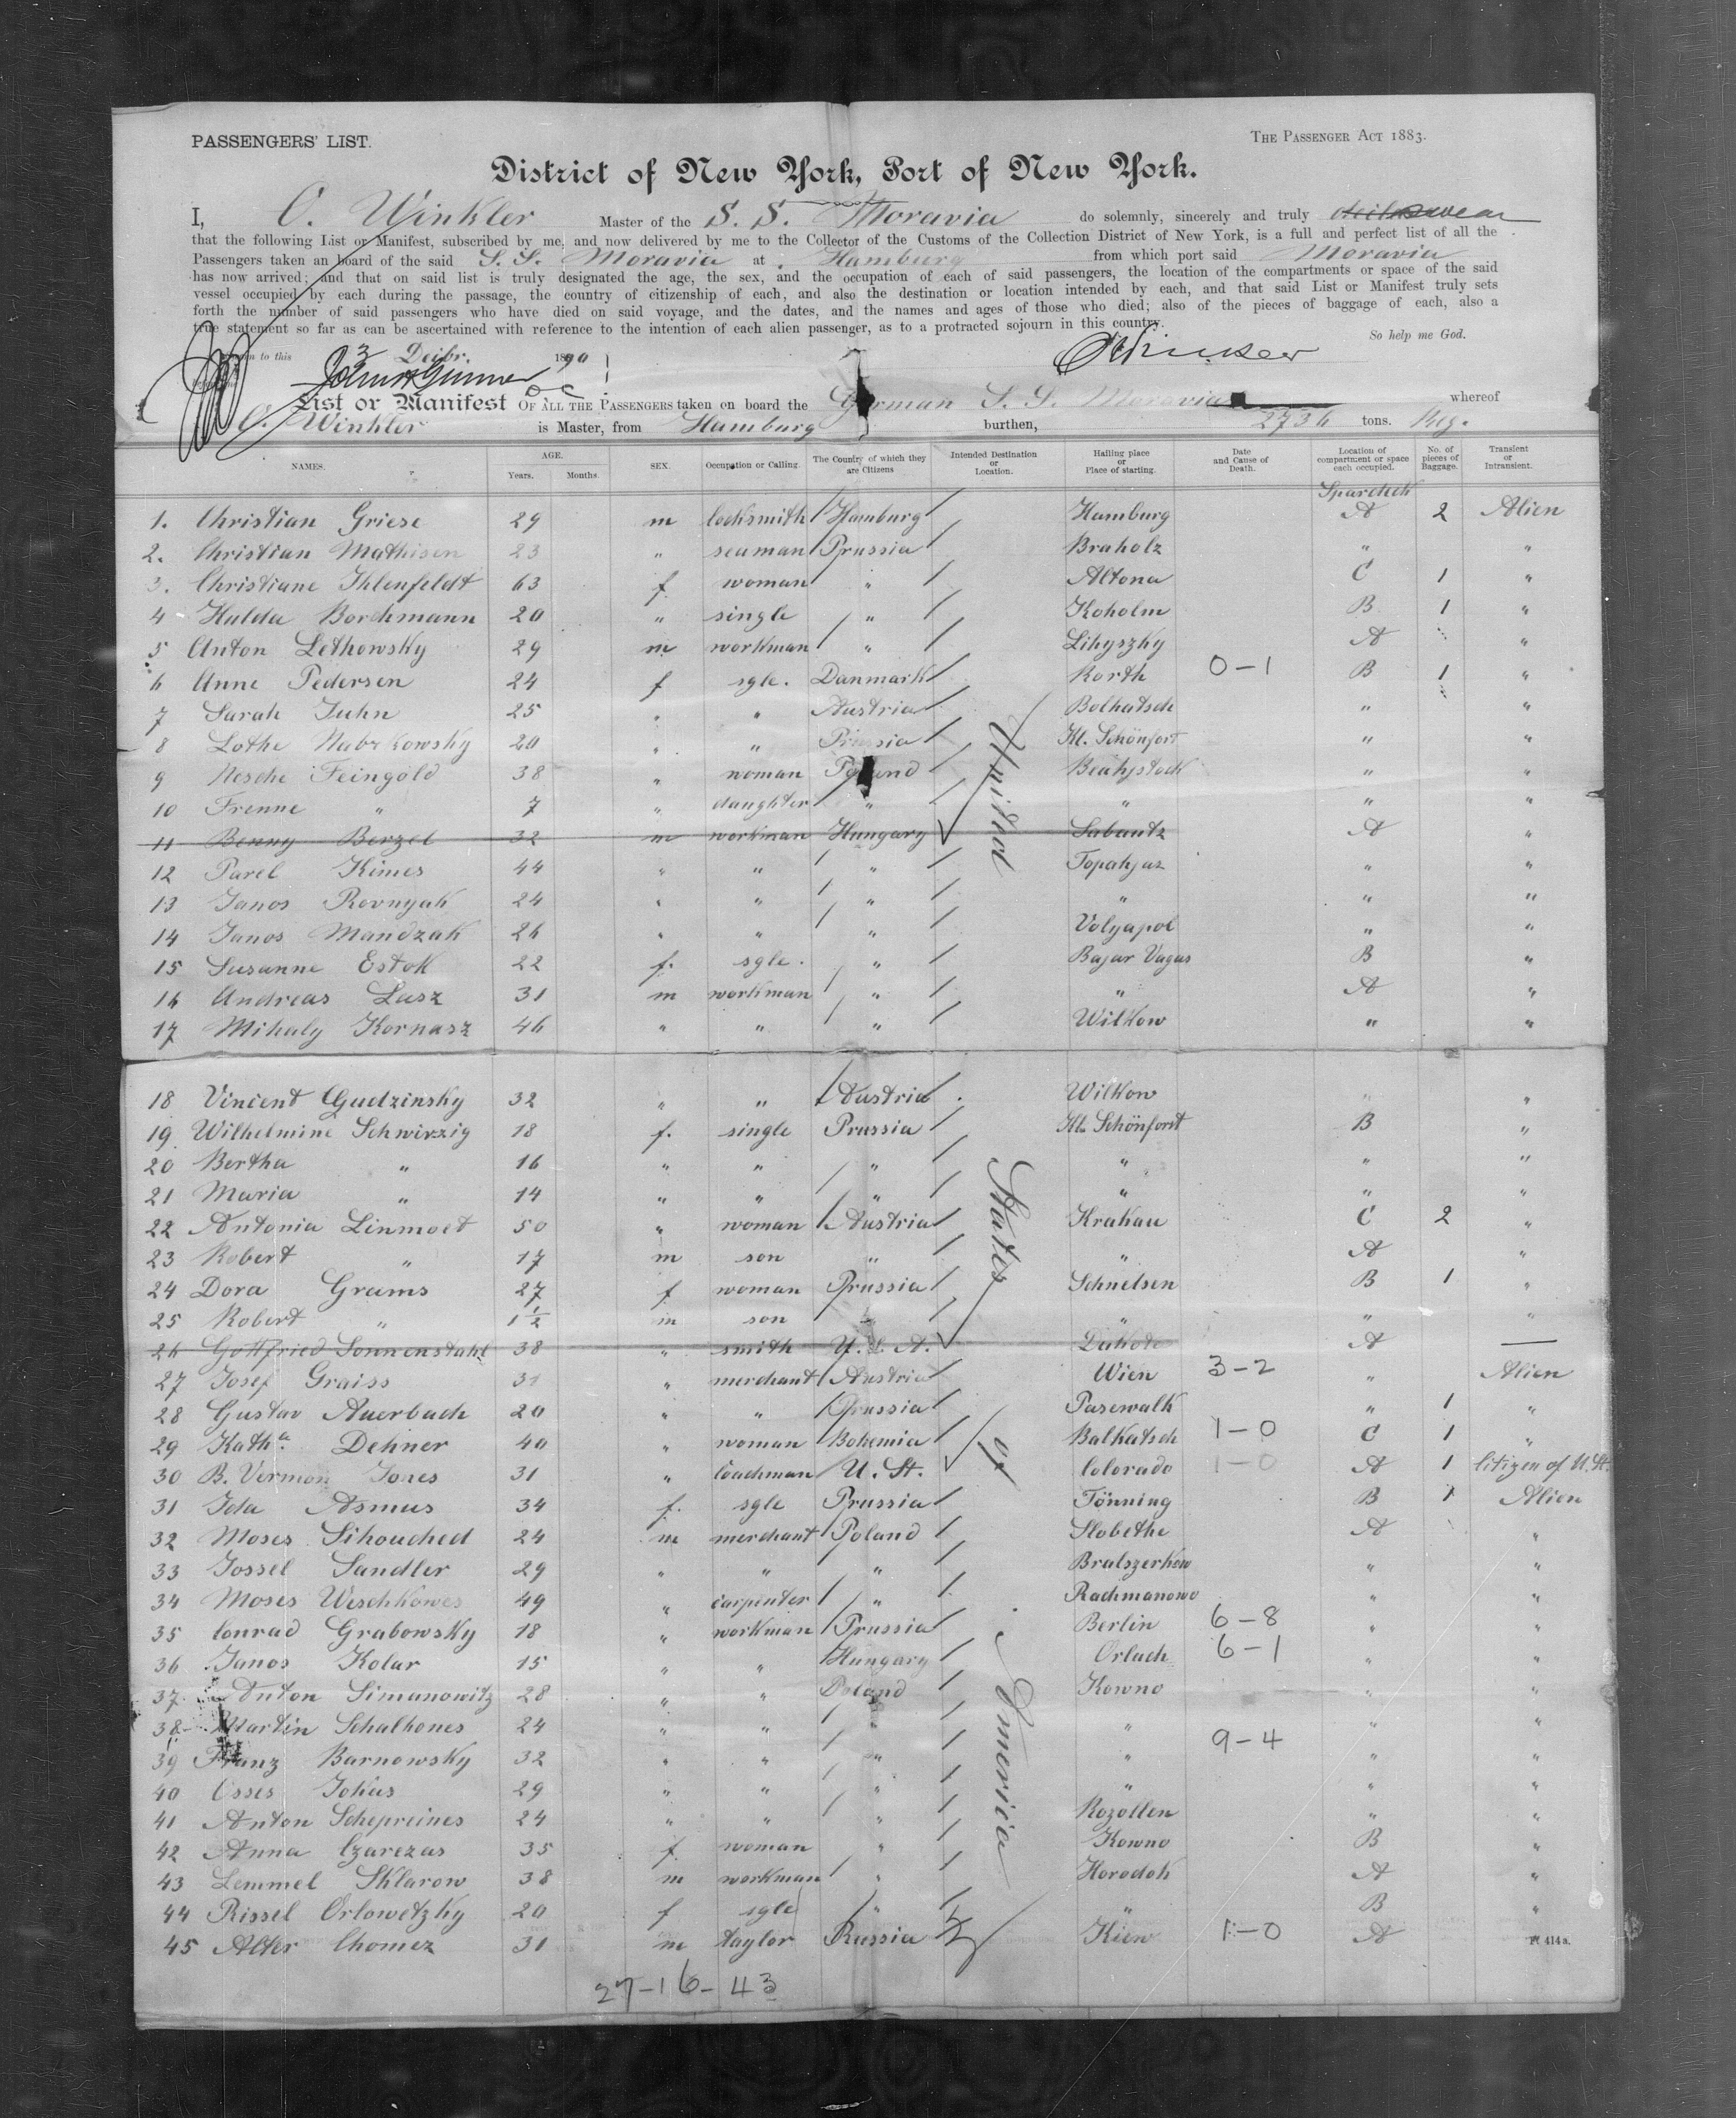 PASSENGERS' LIST.
THE PASSENGER ACT 1883.
District of New York, Port of New York.
I, O. Winkler Master of the S. S. Moravia do solemnly, sincerely and truly swear
that the following List or Manifest, subscribed by me, and now delivered by me to the Collector of the Customs of the Collection District of New York, is a full and perfect list of all the
Passengers taken on board of the said S. S. Moravia at Hamburg from which port said Moravia
has now arrived; and that on said list is truly designated the age, the sex, and the occupation of each of said passengers, the location of the compartments or space of the said
vessel occupied by each during the passage, the country of citizenship of each, and also the destination or location intended by each, and that said List or Manifest truly sets
forth the number of said passengers who have died on said voyage, and the dates, and the names and ages of those who died; also of the pieces of baggage of each, also a
true statement so far as can be ascertained with reference to the intention of each alien passenger, as to a protracted sojourn in this country.
So help me God.
to this 3 Decbr. 1890
OWinkler
List or Manifest OF ALL THE PASSENGERS taken on board the German S. S. Moravia whereof
O. Winkler is Master, from Hamburg burthen, 2736 tons. Reg.
NAMES. AGE. Years. Months. SEX. Occupation or Calling. The Country of which they are Citizens Intended Destination or Location. Hailing place or Place of starting. Date and Cause of Death. Location of compartment or space each occupied. No. of pieces of Baggage. Transient or Intransient.
Spardeck
1. Christian Griese 29 m locksmith Hamburg Hamburg A 2 Alien
2. Christian Mathisen 23 " seaman Prussia Braholz " "
3. Christiane Ihlenfeldt 63 f woman " Altona C 1 "
4 Hulda Borchmann 20 " single " Koholm B 1 "
5 Anton Lethowsky 29 m workman " Lihyszky A "
6 Anne Pedersen 24 f sgle. Danmark Korth 0-1 B 1 "
7 Sarah Juhn 25 " " Austria Bolhatsch " "
8 Lothe Nabrkowsky 20 " " Prussia Kl. Schönfort " "
9 Nesche Feingold 38 " woman Poland " "
10 Frenne " 7 " daughter " " " "
11 Benny Berzel 32 m workman Hungary Sabantz A "
12 Parel Kimes 44 " " " Topahjaz " "
13 Janos Rovnyak 24 " " " " " "
14 Janos Mandzak 26 " " " Volyapol " "
15 Susanne Estok 22 f. sgle. " Bajar Vagas B "
16 Andreas Lasz 31 m workman " " A "
17 Mihaly Kornasz 46 " " " Wilkow " "
18 Vincent Gudzinsky 32 " " Austria Wilkow " "
19 Wilhelmine Schwirzig 18 f. single Prussia Kl. Schönforst B "
20 Bertha " 16 " " " " " "
21 Maria " 14 " " " " " "
22 Antonia Linmoet 50 " woman Austria Krakau C 2 "
23 Robert " 17 m son " " A "
24 Dora Grams 27 f woman Prussia Schnelsen B 1 "
25 Robert " 1½ m son " " " "
26 Gottfried Sonnenstahl 38 " smith U. S. A. Dakota A —
27 Josef Graiss 31 " merchant Austria Wien 3-2 " Alien
28 Gustav Auerbach 20 " " Prussia Pasewalk " 1 "
29 Kath.a Dehner 40 " woman Bohemia Balkatsch 1-0 C 1 "
30 B. Vermon Jones 31 " coachman U. St. Colorado 1-0 A 1 Citizen of U. St.
31 Ida Asmus 34 f. sgle Prussia Tönning B 1 Alien
32 Moses Sihouched 24 m merchant Poland Slobethe A "
33 Jossel Sandler 29 " " " Bralszerkow " "
34 Moses Wischkowes 49 " carpenter " Rachmanowo " "
35 Conrad Grabowsky 18 " workman Prussia Berlin 6-8 " "
36 Janos Kolar 15 " " Hungary Orlach 6-1 " "
37 Anton Simanowitz 28 " " Poland Kowno " "
38 Martin Schalkones 24 " " " " " "
39 Franz Barnowsky 32 " " " " 9-4 " "
40 Osses Jokus 29 " " " " " "
41 Anton Schepreines 24 " " " Rozollen " "
42 Anna Czarezas 35 f woman " Kowno B "
43 Lemmel Sklarow 38 m workman " Horodok A "
44 Rissel Orlowetzky 20 f sgle " " B "
45 Alter Chomez 31 m taylor Russia Kiew 1-0 A
United States of America
Pt 414a.
27-16-43